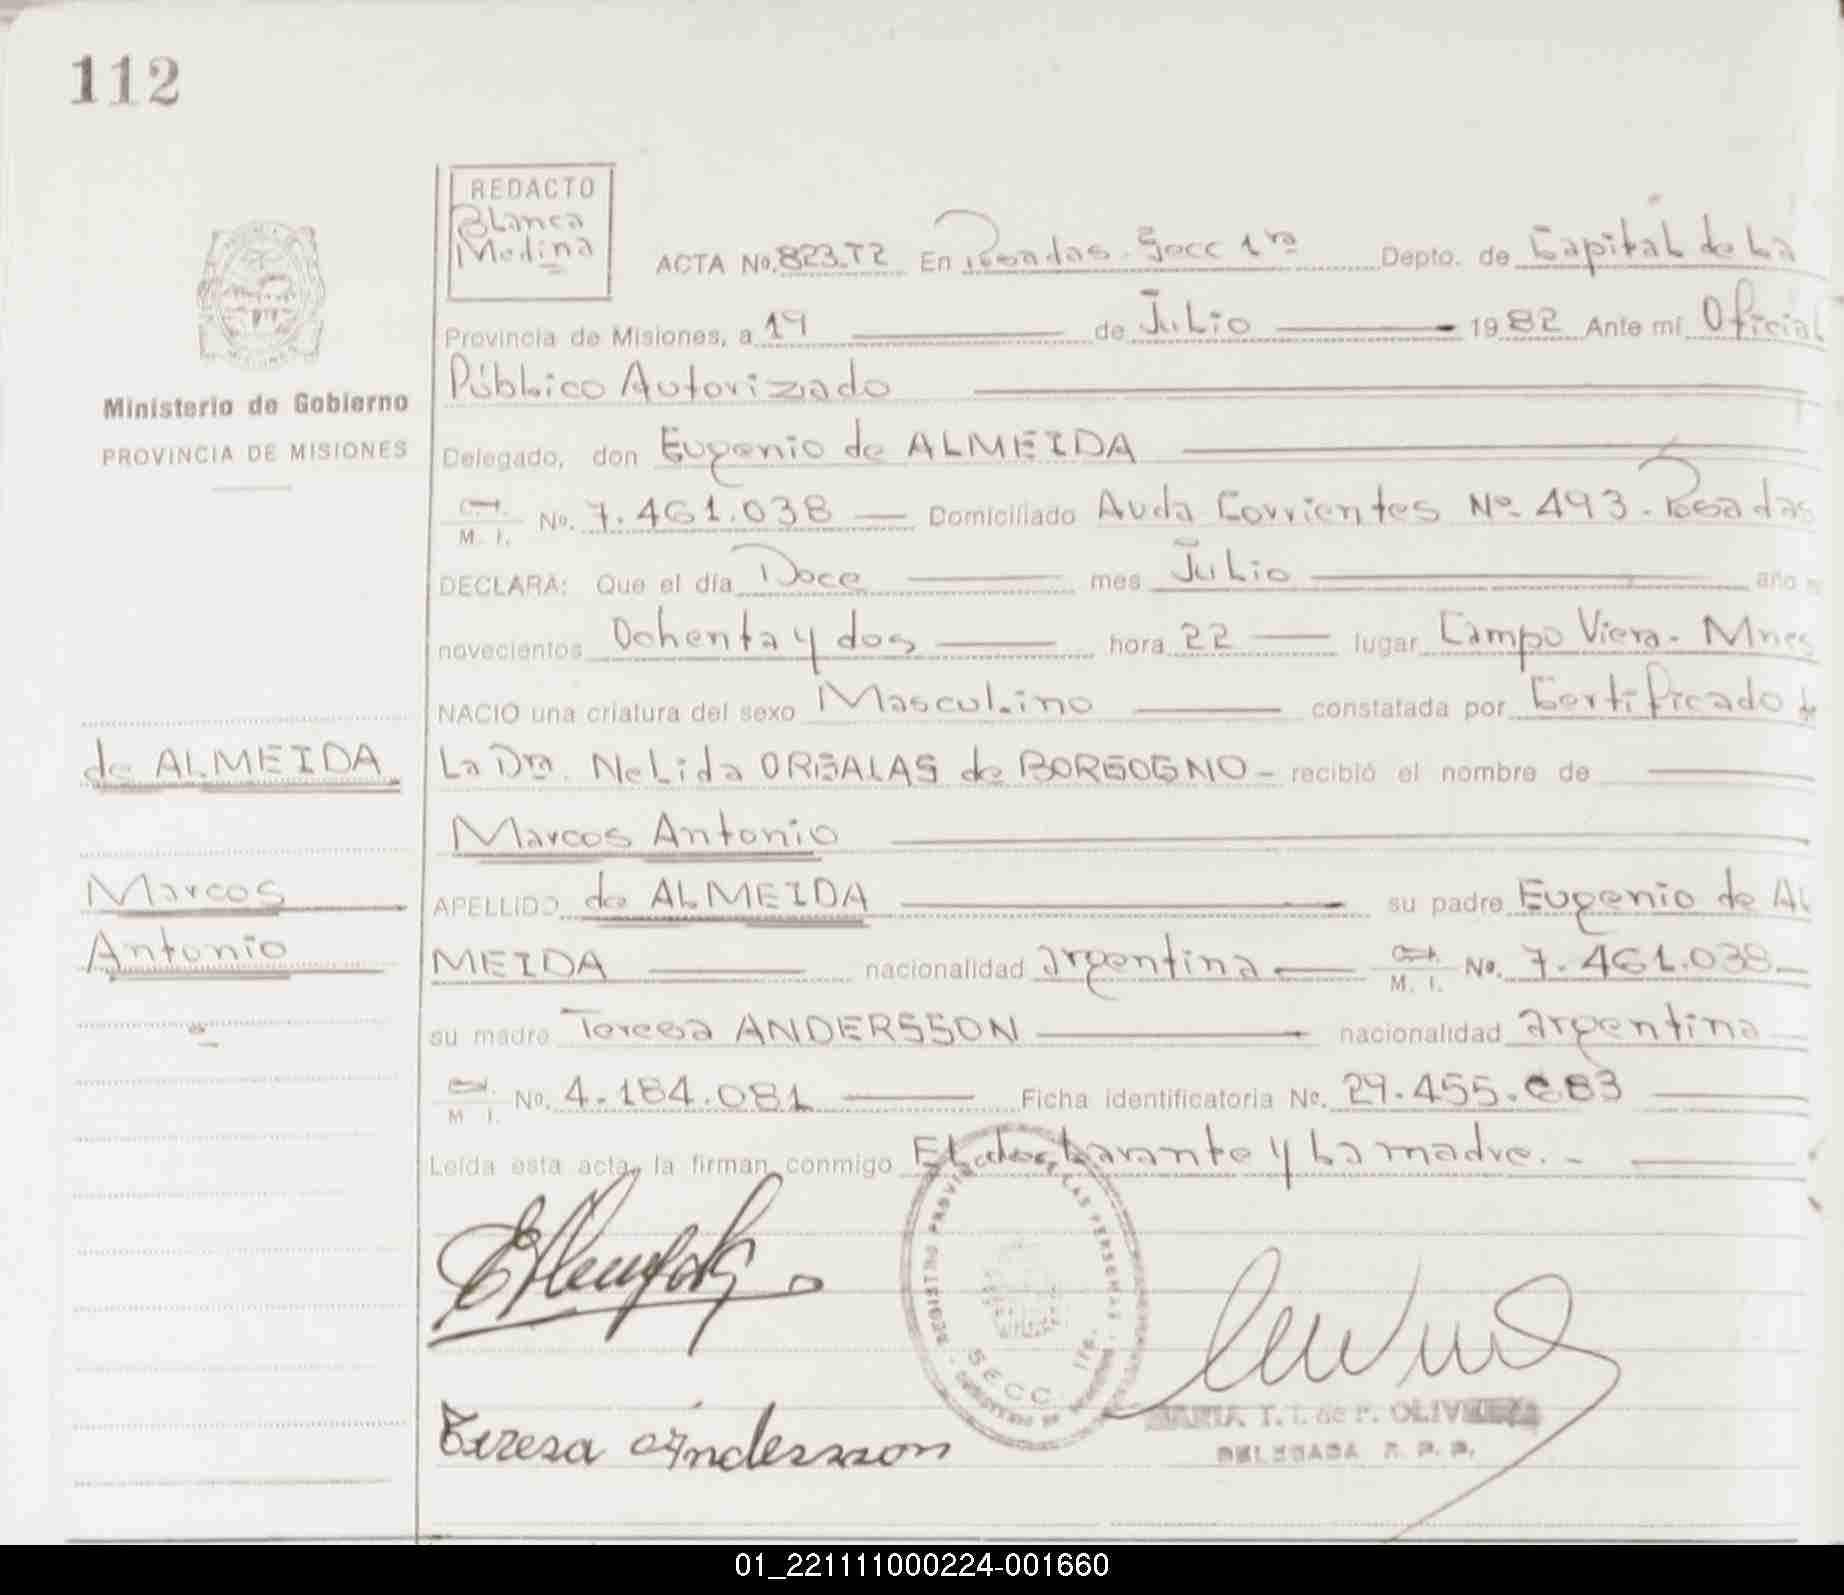 112
REDACTO
Blanca
Medina
ACTA No. 823.T2 En Posadas. Secc 1ra Depto. de Capital de La
Provincia de Misiones, a 19 de Julio 1982 Ante mí Oficial
Público Autorizado
Ministerio de Gobierno
PROVINCIA DE MISIONES
Delegado, don Eugenio de ALMEIDA
M. I. No. 7.461.038 Domiciliado Avda Corrientes Nº 493. Posadas
DECLARA: Que el día Doce mes Julio año
novecientos Ochenta y dos hora 22 lugar Campo Viera. Mnes
NACIO una criatura del sexo Masculino constatada por Certificado
de ALMEIDA
La Dra. Nelida de BORGOGNO recibió el nombre de
Marcos Antonio
Marcos
Antonio
APELLIDO de ALMEIDA su padre Eugenio de AL
MEIDA nacionalidad argentina M. I. No. 7.461.038
su madre Teresa ANDERSSON nacionalidad argentina
M I. No. 4.184.081 Ficha identificatoria No. 29.455.
Leída esta acta, la firman conmigo El declarante y la madre.
REGISTRO PROVINCIAL DE LAS PERSONAS
SECC. 1ra.
Teresa Andersson
MARIA T. I. de P. OLIVEIRA
DELEGADA R. P. P.
01_221111000224-001660